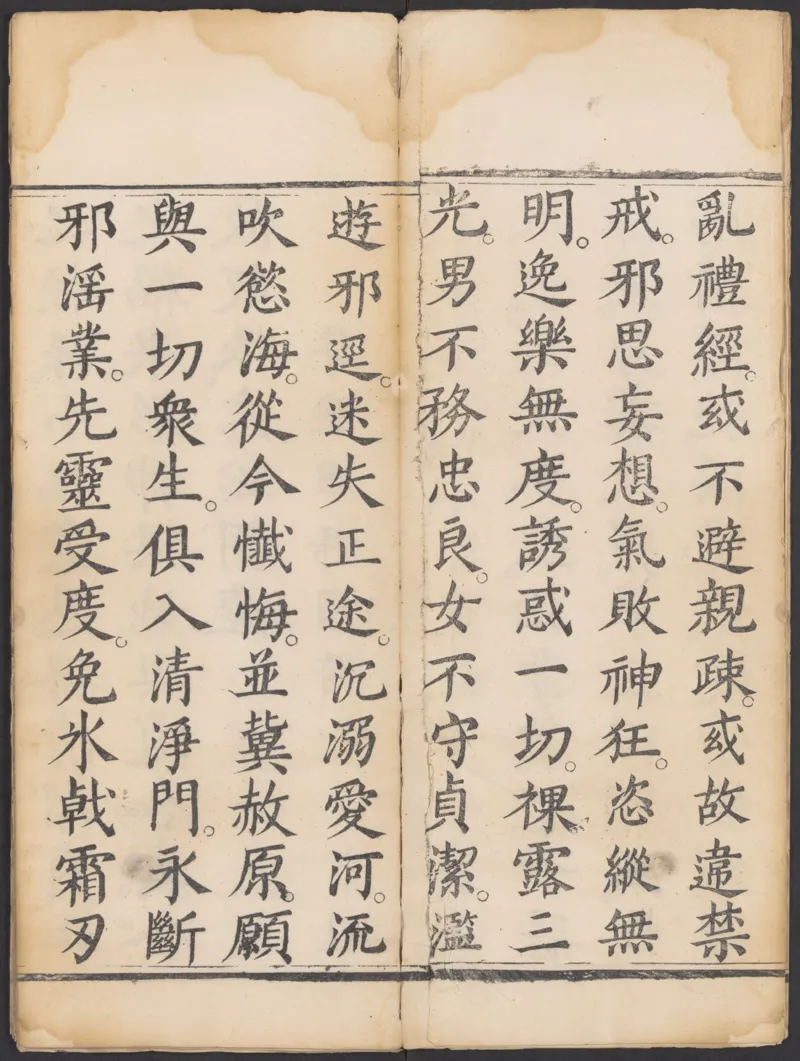 亂禮經。或不避親疎。或故違禁
戒。邪思妄想。氣敗神狂。恣縱無
明。逸樂無度。誘惑一切。裸露三
光。男不務忠良。女不守貞潔。濫
遊邪逕。迷失正途。沉溺愛河。流
吹慾海。從今懺悔。並冀赦原。願
與一切衆生。俱入清淨門。永斷
邪滛業。先靈受度。免氷戟霜刃